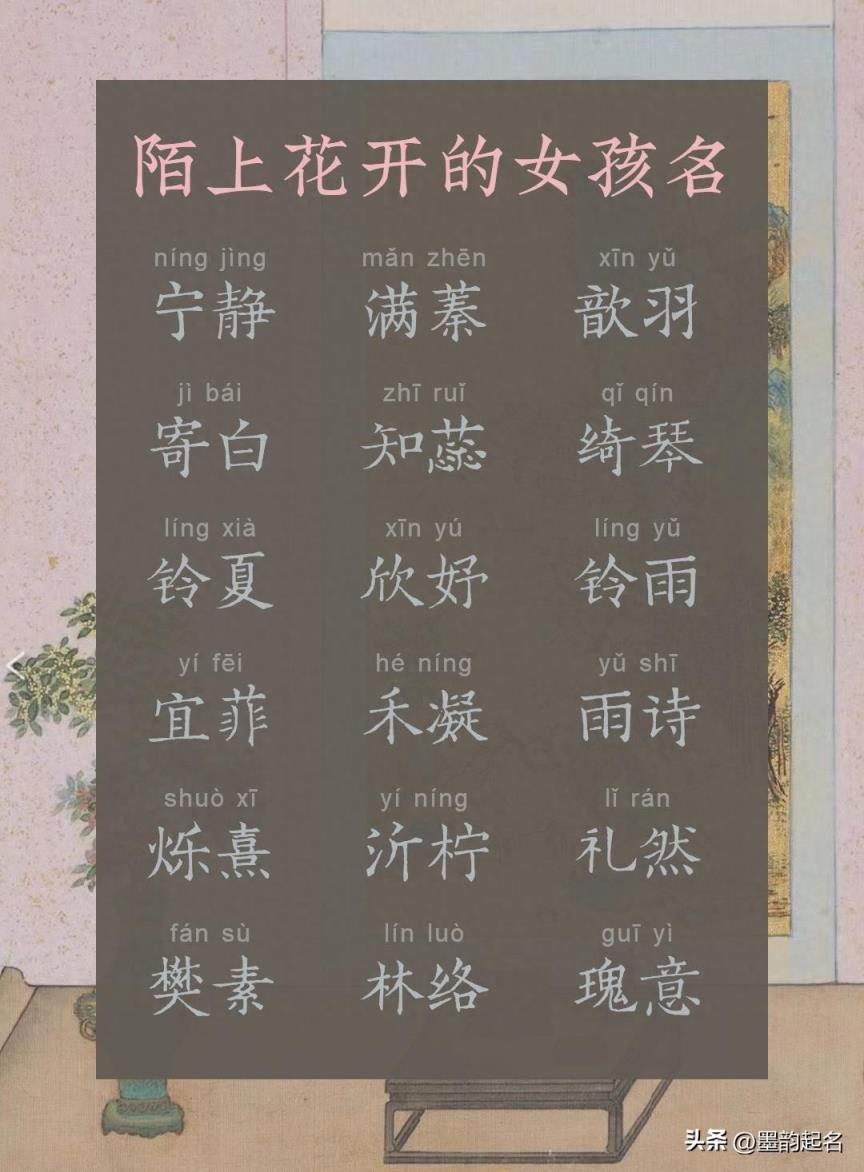 陌上花开的女孩名
níng jìng mǎn zhēn xīn yǔ
宁静 满蓁 歆羽
jì bái zhī ruǐ qǐ qín
寄白 知蕊 绮琴
líng xià xīn yú líng yǔ
铃夏 欣妤 铃雨
yí fēi hé níng yǔ shī
宜菲 禾凝 雨诗
shuò xī yí níng lǐ rán
烁熹 沂柠 礼然
fán sù lín luò guī yì
樊素 林络 瑰意
头条 @墨韵起名